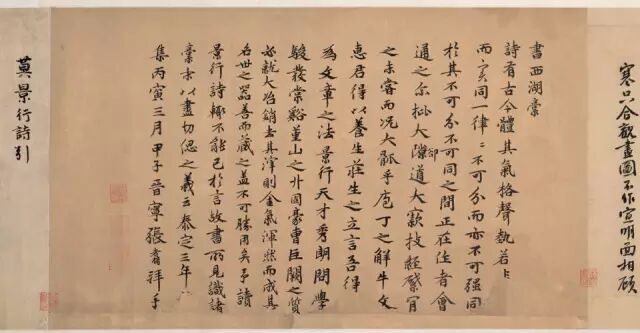 寒只合觀畫圖不作宣明面相顧
書西湖藁
詩有古今體其氣格聲執若
而同一律〻不可分而亦不可强同
於其不可分不可同之間正在作者會
通之尔批大郤道大窾技經綮肯
之未嘗而況大軱乎庖丁之解牛文
惠君得以養生莊生之立言吾得
為文章之法景行天才秀朗問學
駿發棠谿堇山之外固豪曹巨闕之質
必就大冶銷去其滓則金氣渾然而成其
名世之器善而藏之蓋不可勝用矣予讀
景行詩輒不能已於言故書所見識諸
藁末以盡切偲之義云泰定三年
集丙寅三月甲子晉寧張翥拜手
莫景行詩引